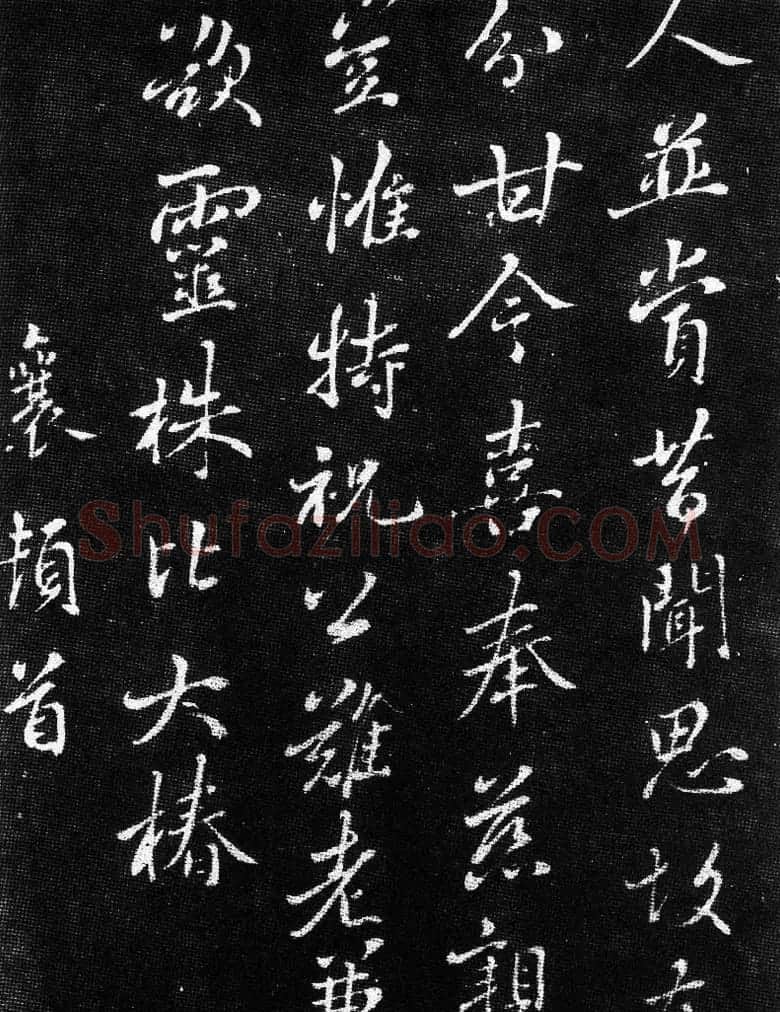 人並賞昔聞思故
分甘今喜奉慈親
豈惟特祝公難老兼
欲靈株比大椿
襄頓首
Shufaziliao.COM